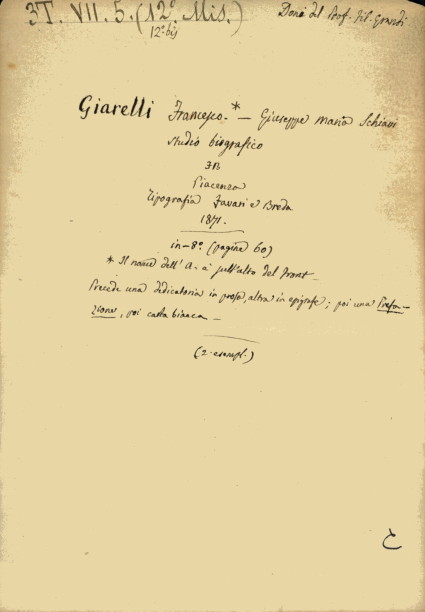 3T. VII. 5. (12° Mis.)
12° bis
Dono del Prof. Gil. Grandi
Giarelli Francesco.* — Giuseppe Maria Schiavi
studio biografico
Piacenza
Tipografia Favari e Breda
1871.
in-8° (pagine 60)
* Il nome dell' A. è sull'alto del front.
Precede una dedicatoria in prosa, altra in epigrafe; poi una Prefa-
zione, poi carta bianca —
(2. esempl.)